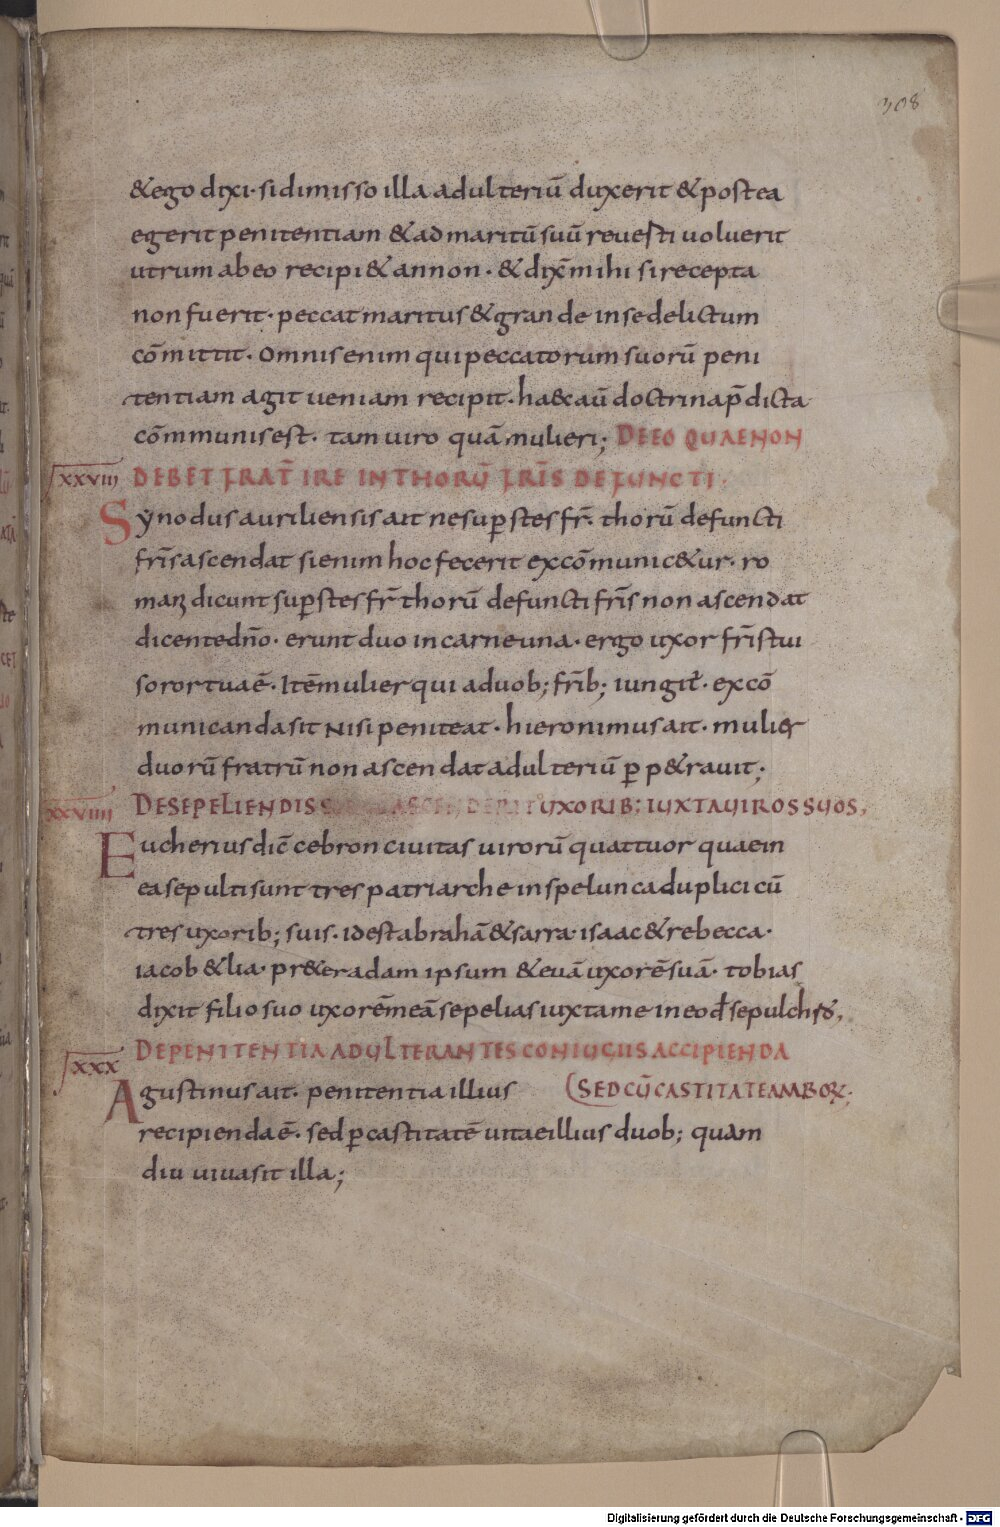 308
& ego dixi · si dimisso illa adulteriū duxerit & postea
egerit penitentiam & ad maritū suū reuesti uoluerit
utrum ab eo recipi & an non · & dix̄ mihi si recepta
non fuerit · peccat maritus & grande in se delictum
cōmittit · Omnis enim qui peccatorum suorū peni
tentiam agit ueniam recipit · haec aū doctrina p̄dicta
cōmmunis est · tam uiro quā mulieri; DE EO QUAE NON
XXVIII DEBET FRAT̄ IRE IN THORŪ FR̄IS DEFUNCTI ·
Synodus auriliensis ait ne sup̱stes fr̄ · thorū defuncti
fr̄is ascendat si enim hoc fecerit excōmunic&ur · ro
maꝝ dicunt sup̱stes fr̄ thorū defuncti fr̄is non ascendat
dicente dn̄o · erunt duo in carne una · ergo uxor fr̄is tui
soror tua ē · Itē mulier qui a duob; frīb; iungit̄ · excō
municanda sit Nisi peniteat · hieronimus ait · mulier
duorū fratrū non ascendat adulteriū ꝑp&rauit;
XXVIIII DE SEPELIENDIS UXORIB; IUXTA UIROS SUOS,
Eucherius dic̄ cebron ciuitas uirorū quattuor quae in
ea sepulti sunt tres patriarche in spelunca duplici cū
tres uxorib; suis · id est abrahā & sarra · isaac & rebecca ·
iacob & lia · pr&er adam ipsum & euā uxorē suā · tobias
dixit filio suo uxorē meā sepelias iuxta me in eod̄ sepulchro,
XXX DE PENITENTIA ADULTERANTES CONIUGIIS ACCIPIENDA
Agustinus ait · penitentia illius (SED CŪ CASTITATE AMBOꝜ;
recipienda ē · sed ꝑ castitatē uitae illius duob; quam
diu uiua sit illa;
Digitalisierung gefördert durch die Deutsche Forschungsgemeinschaft - DFG